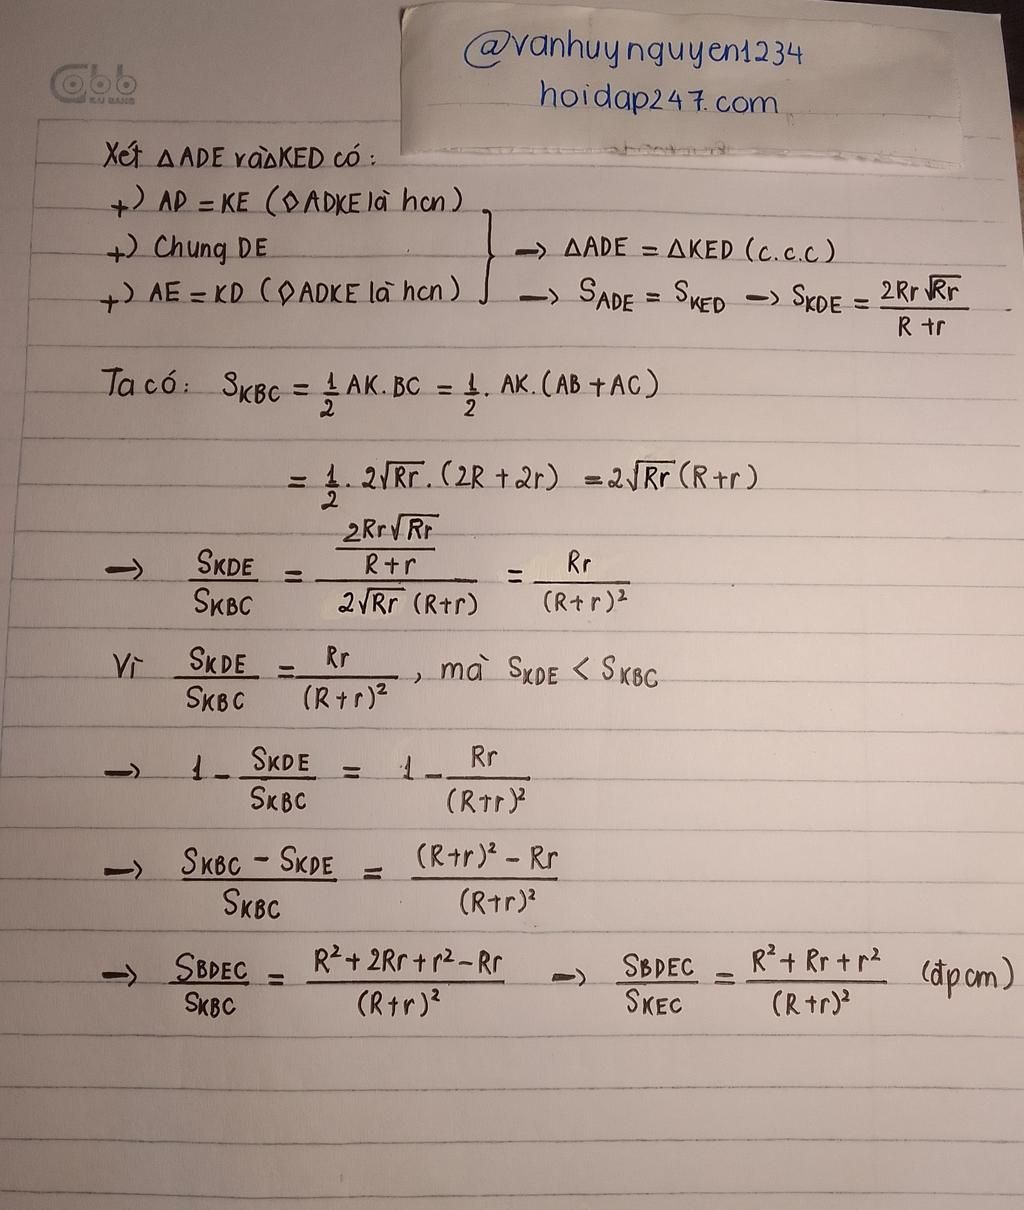 @vanhuynguyen1234
hoidap247.com
Xét △ADE và △KED có:
+) AD = KE (◊ADKE là hcn)
+) Chung DE
→ △ADE = △KED (c.c.c)
+) AE = KD (◊ADKE là hcn)
→ S_ADE = S_KED → S_KDE = 2Rr√Rr / R+r
Ta có: S_KBC = 1/2 AK.BC = 1/2 . AK.(AB+AC)
= 1/2 . 2√Rr . (2R + 2r) = 2√Rr (R+r)
→ S_KDE / S_KBC = (2Rr√Rr / R+r) / 2√Rr (R+r) = Rr / (R+r)²
Vì S_KDE / S_KBC = Rr / (R+r)² , mà S_KDE < S_KBC
→ 1 - S_KDE / S_KBC = 1 - Rr / (R+r)²
→ S_KBC - S_KDE / S_KBC = (R+r)² - Rr / (R+r)²
→ S_BDEC / S_KBC = R² + 2Rr + r² - Rr / (R+r)² → S_BDEC / S_KEC = R² + Rr + r² / (R+r)² (đpcm)